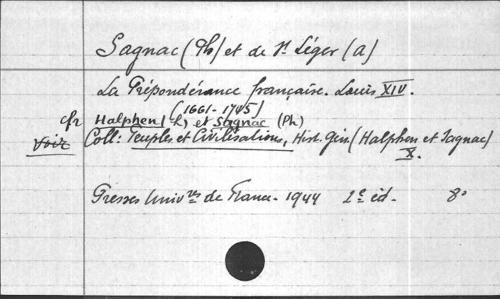 Sagnac (Ph) et de St Léger (A)
La Prépondérance française. Louis XIV.
(1661-1715)
cfr Halphen (L) et Sagnac (Ph)
voir Coll: Peuples et Civilisations, Hist. Gén. (Halphen et Sagnac)
X.
Presses Univres de France. 1944 2e éd. 8°